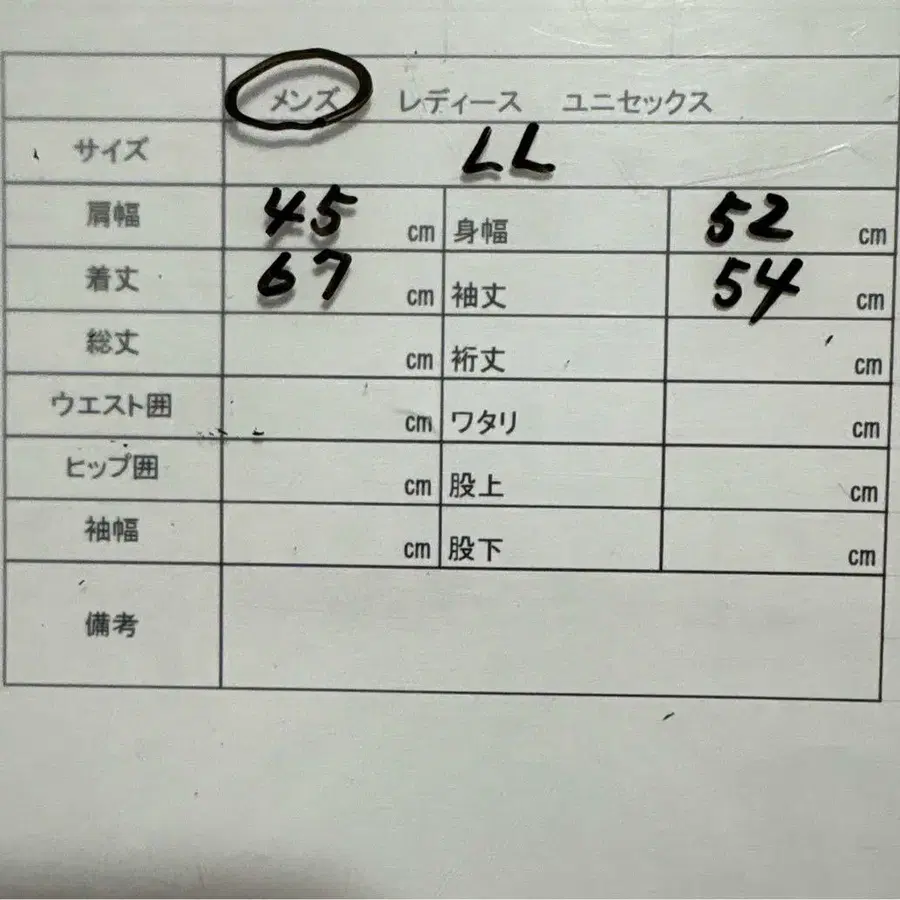 メンズ レディース ユニセックス
サイズ LL
肩幅 45 cm 身幅 52 cm
着丈 67 cm 袖丈 54 cm
総丈 cm 裄丈 cm
ウエスト囲 cm ワタリ cm
ヒップ囲 cm 股上 cm
袖幅 cm 股下 cm
備考